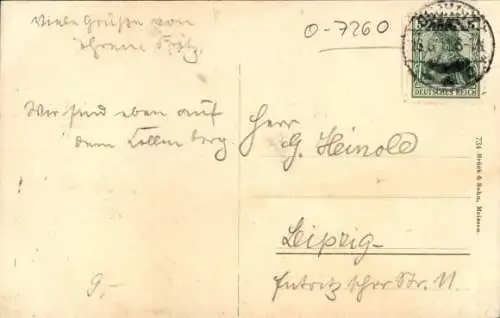 Viele Grüße von
Ihrem Fritz.
Wir sind eben auf
dem Collmberg
O-7260
DEUTSCHES REICH
Herr
G. Heinold
Leipzig-
Eutritzscher Str. 11
9.-
734 Brück & Sohn, Meissen.